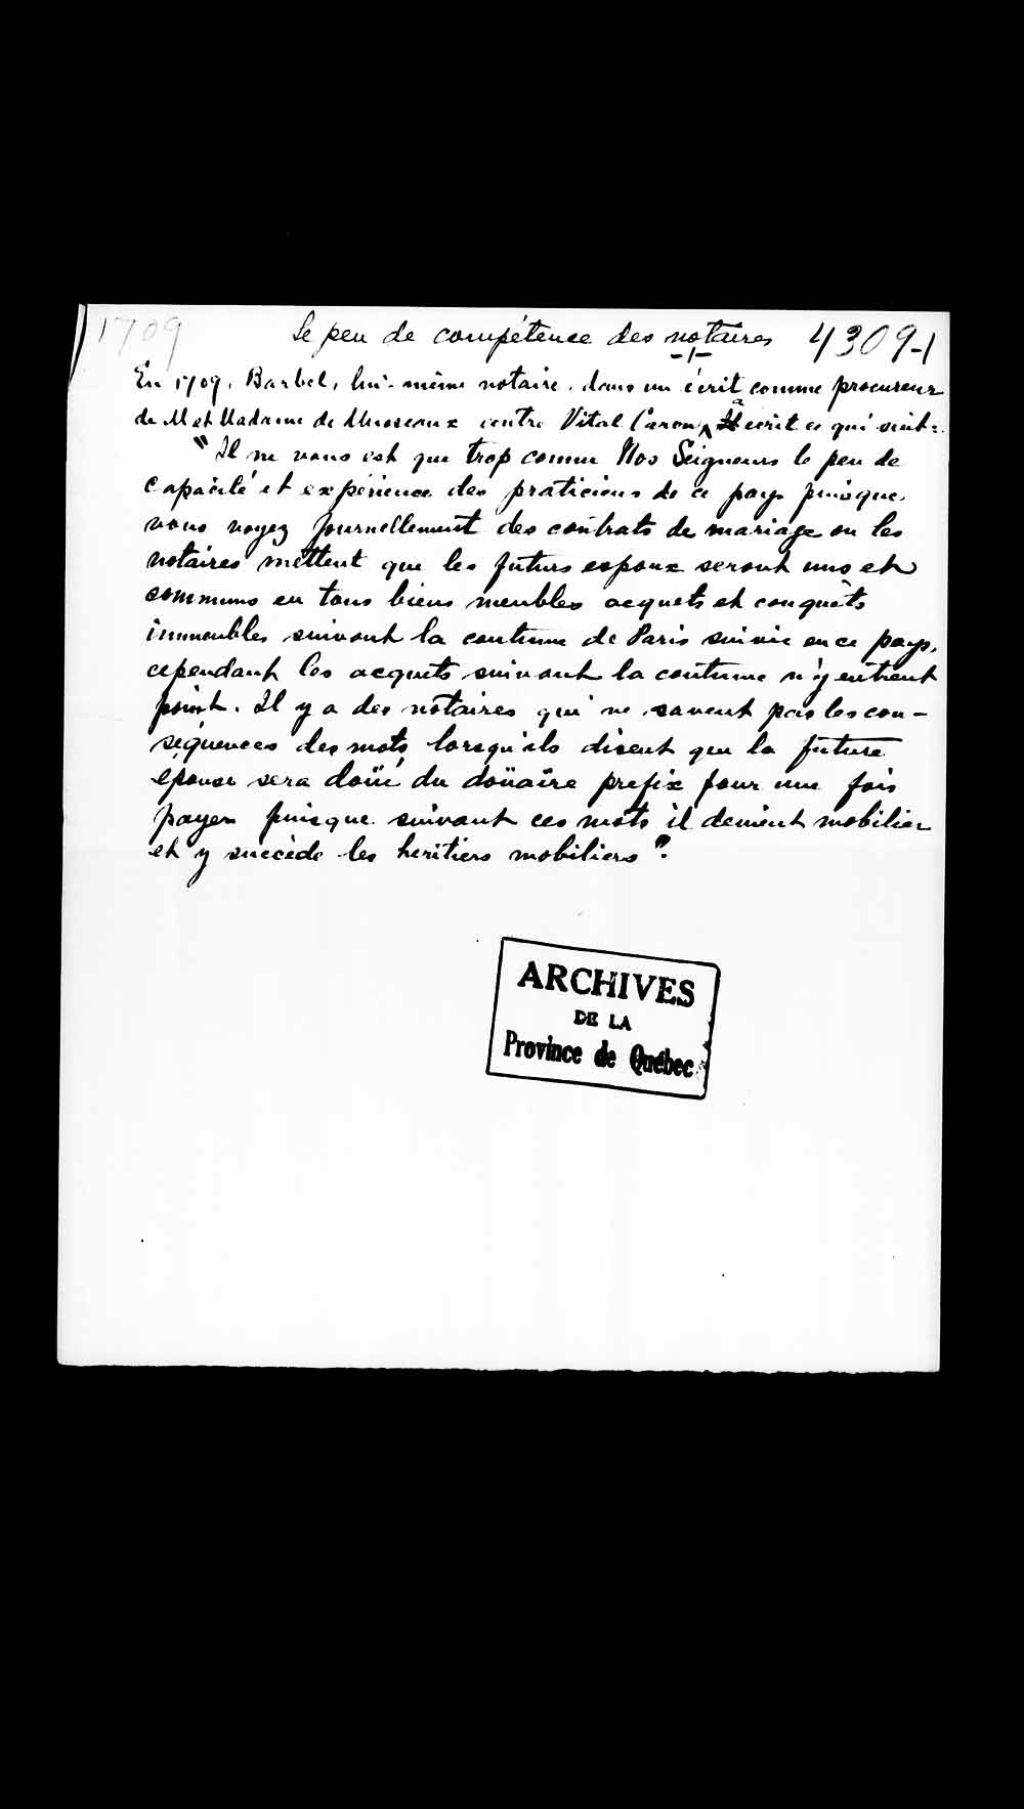 1709
Le peu de compétence des notaires 4309-1
-/-
En 1709, Barbel, lui-même notaire, dans un écrit comme procureur
de M et Madame de Museaux contre Vital Caron, a écrit ce qui suit:
"Il ne vous est que trop connu Nos Seigneurs le peu de
capacité et expérience des praticiens de ce pays puisque
vous voyez journellement des contrats de mariage ou les
notaires mettent que les futurs espoux seront uns et
communs en tous biens meubles acquets et conquêts
immeubles suivant la coutume de Paris suivie en ce pays,
cependant les acquets suivant la coutume n'y entrent
point. Il y a des notaires qui ne savent pas les con-
séquences des mots lorsqu'ils disent que la future
épouse sera doüé du doüaire prefix pour une fois
payer puisque suivant ces mots il devient mobilier
et y succède les heritiers mobiliers".
ARCHIVES
DE LA
Province de Québec